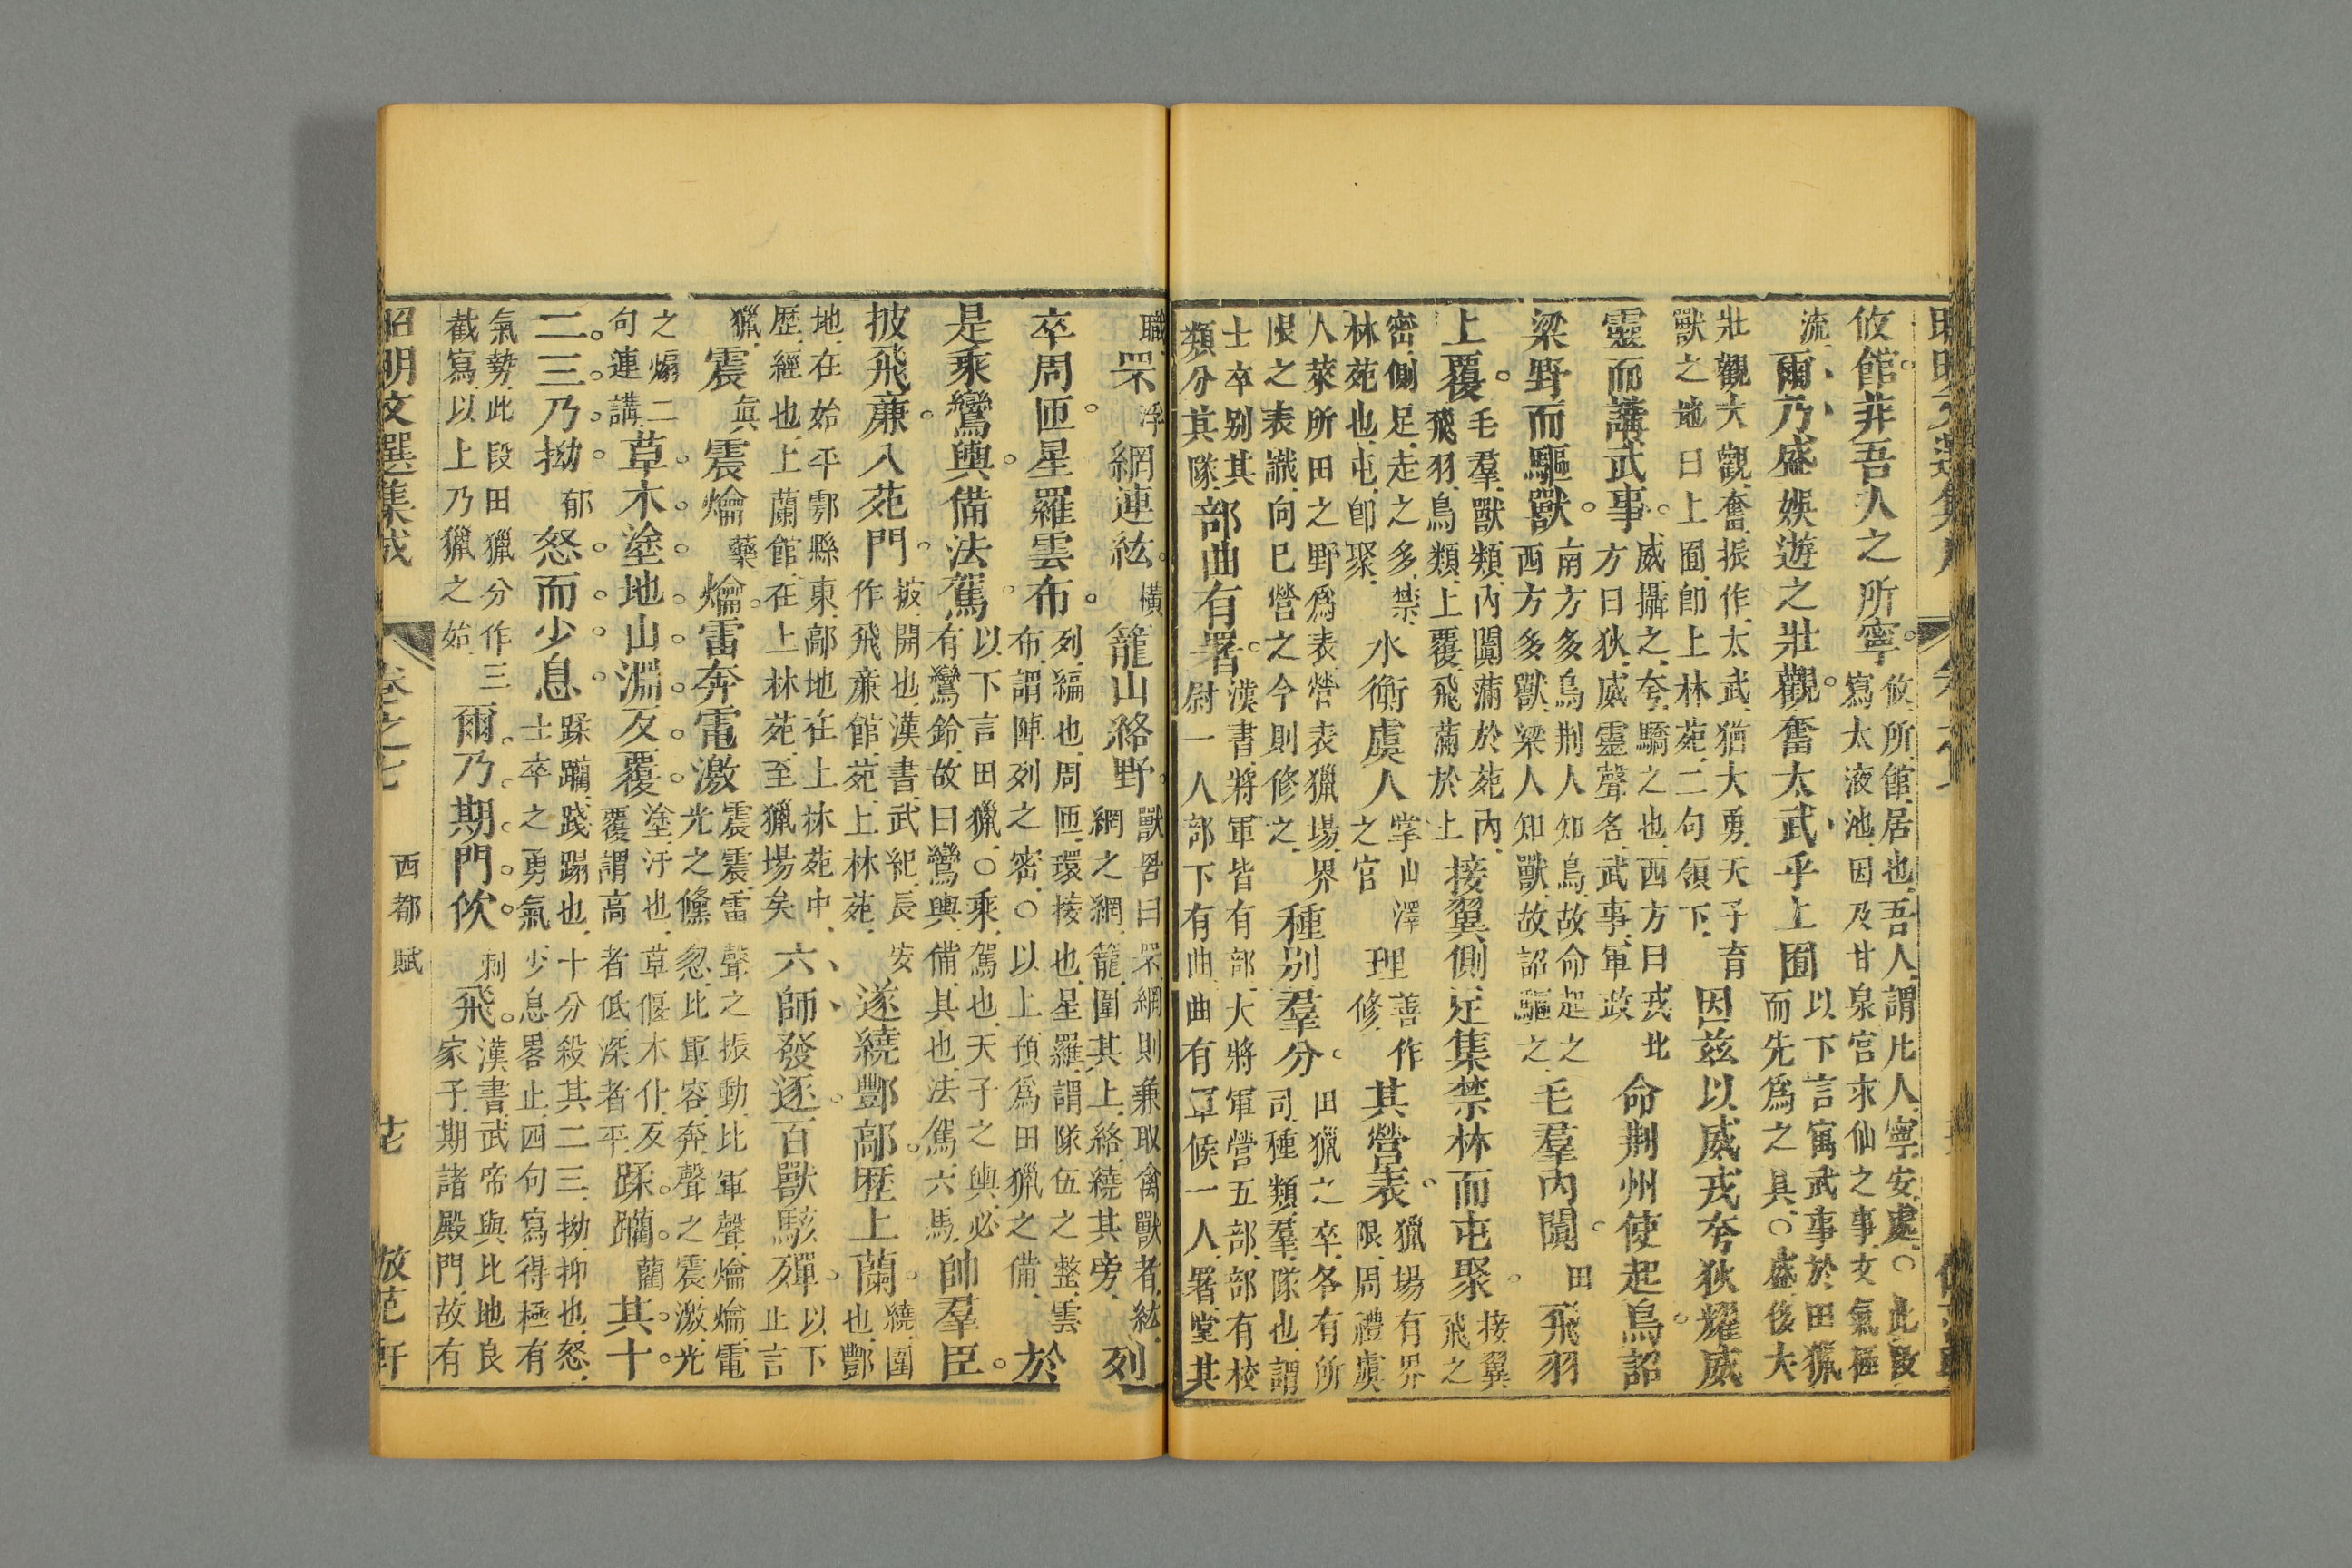 攸館非吾人之所寧攸所館居也吾人謂凡人寧安處○此段寫太液池因及甘泉宮求仙之事文氣極
流爾乃盛娛遊之壯觀奮太武乎上囿以下言寓武事於田獵而先爲之具○盛後大
壯觀大觀奮振作太武猶大勇天子育獸之地曰上囿卽上林苑二句領下因茲以威戎夸狄耀威
靈而講武事威攝之夸驕之也西方曰戎北方曰狄威靈聲名武事軍政命荆州使起鳥詔
梁野而驅獸南方多鳥荆人知鳥故命起之西方多獸梁人知獸故詔驅之毛羣內闐田飛羽
上覆毛羣獸類內闐滿於苑內飛羽鳥類上覆飛滿於上接翼側足集禁林而屯聚接翼飛之
密側足走之多禁林苑也屯卽聚水衡虞人掌山澤之官理善作修其營表獵場有界限周禮虞
人萊所田之野爲表營表獵場界限之表識向已營之今則修之種别羣分田獵之卒各有所司種類羣隊也謂
士卒别其類分其隊部曲有署漢書將軍皆有部大將軍營五部部有校尉一人部下有曲曲有軍候一人署堂其
職罘浮網連紘橫籠山絡野獸罟曰罘網則兼取禽獸者紘網之網籠圍其上絡繞其旁列
卒周匝星羅雲布列編也周匝環接也星羅謂隊伍之整雲布謂陣列之密○以上預爲田獵之備於
是乘鸞輿備法駕以下言田獵○乘駕也天子之輿必有鸞鈴故曰鸞輿備其也法駕六馬帥羣臣
披飛廉入苑門披開也漢書武紀長安作飛廉館苑上林苑遂繞酆鄗歷上蘭繞圍也酆
地在始平鄠縣東鄗地在上林苑中歷經也上蘭館在上林苑至獵場矣六師發逐百獸駭殫以下止言
獵震眞震爚藥爚雷奔電激震震雷聲之振動比軍聲爚爚電光之儵忽比軍容奔聲之震激光
之煽二句連講草木塗地山淵反覆塗汙也草偃木仆反覆謂高者低深者平蹂躪藺其十
二三乃拗郁怒而少息蹂躪踐蹋也十分殺其二三拗抑也怒士卒之勇氣少息畧止四句寫得極有
氣勢此段田獵分作三截寫以上乃獵之始爾乃期門佽刺飛漢書武帝與北地良家子期諸殿門故有
昭明文選集成 卷之七 西都賦